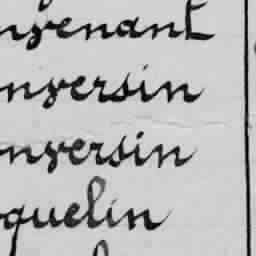 nvenant
nversin
nversin
quelin